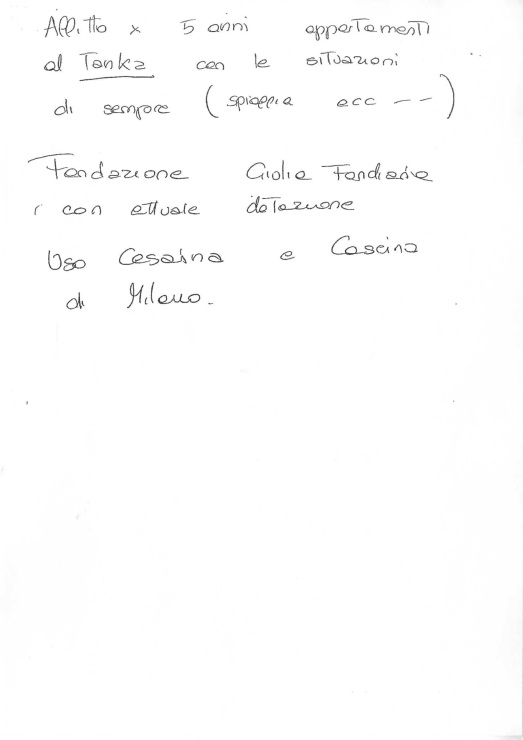 Affitto x 5 anni appartamenti
al Tanka con le situazioni
di sempre (spiaggia ecc --)
Fondazione Giulia
con attuale dotazione
Uso Cesarina e Cascina
di Milano.